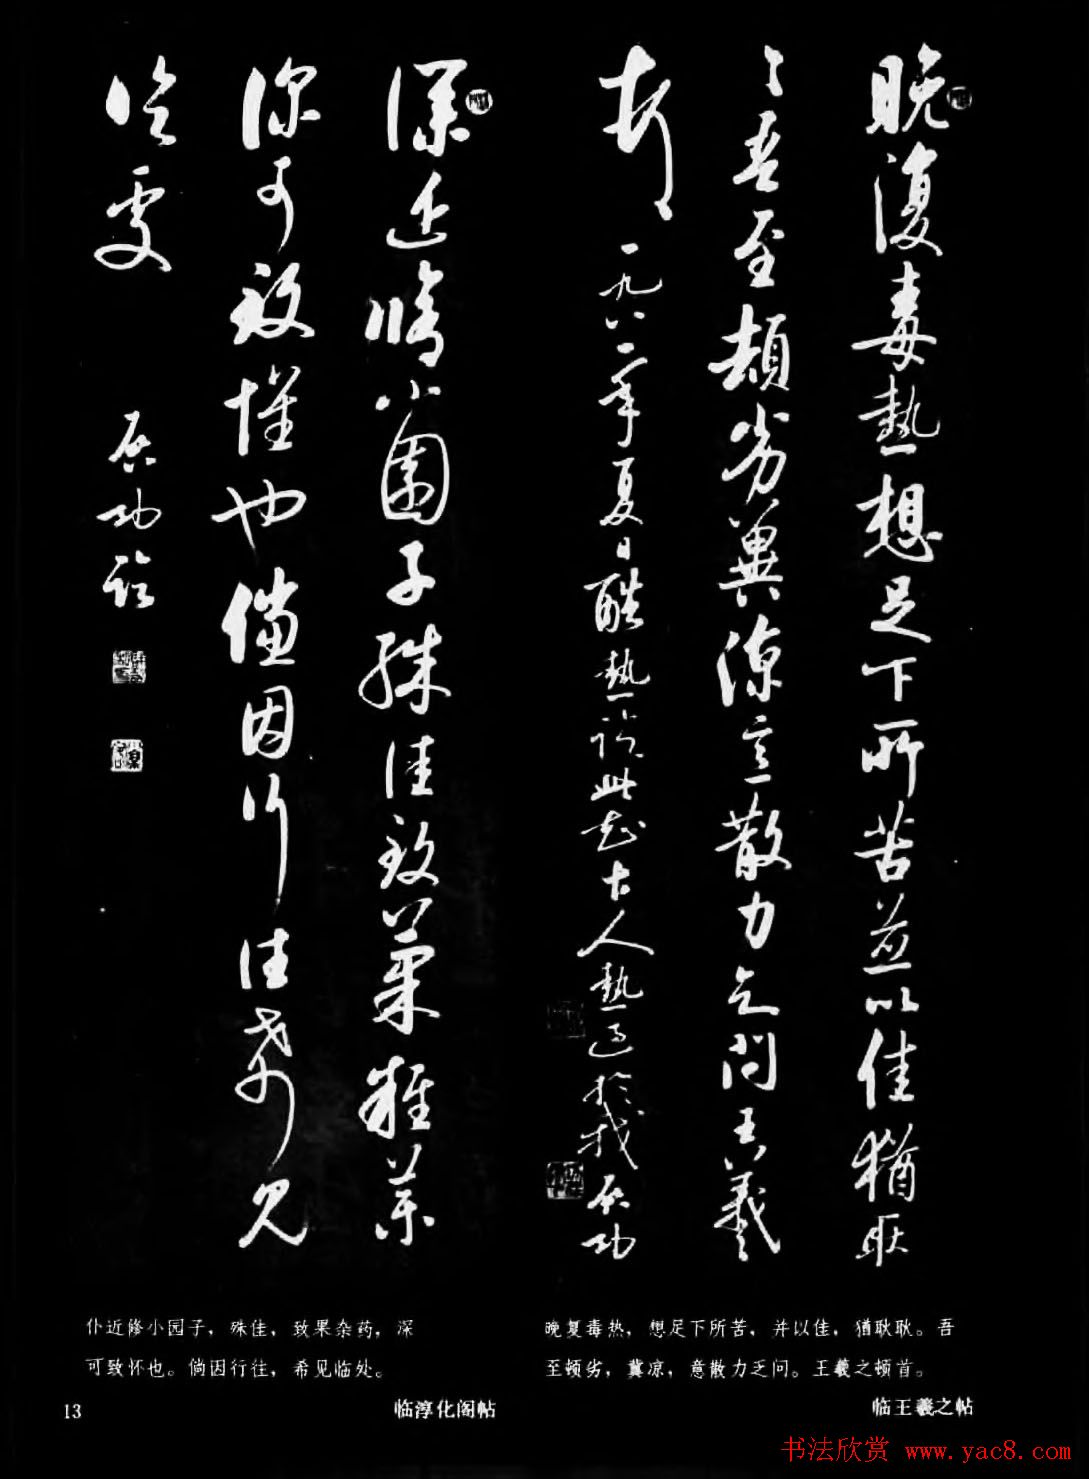 晚復毒熱想足下所苦並以佳猶耿
〻吾至頓劣冀涼意散力乏問王羲之
頓首
一九八二年夏日酷熱臨此知古人熱過於我 启功
僕近脩小園子殊佳致菓雜藥
深可致懷也儻因行往希見
臨處
启功臨
晚复毒热，想足下所苦，并以佳，猶耿耿。吾
至顿劣，冀凉，意散力乏问。王羲之顿首。
临王羲之帖
仆近修小园子，殊佳，致果杂药，深
可致怀也。倘因行往，希见临处。
临淳化阁帖
13
书法欣赏 www.yac8.com